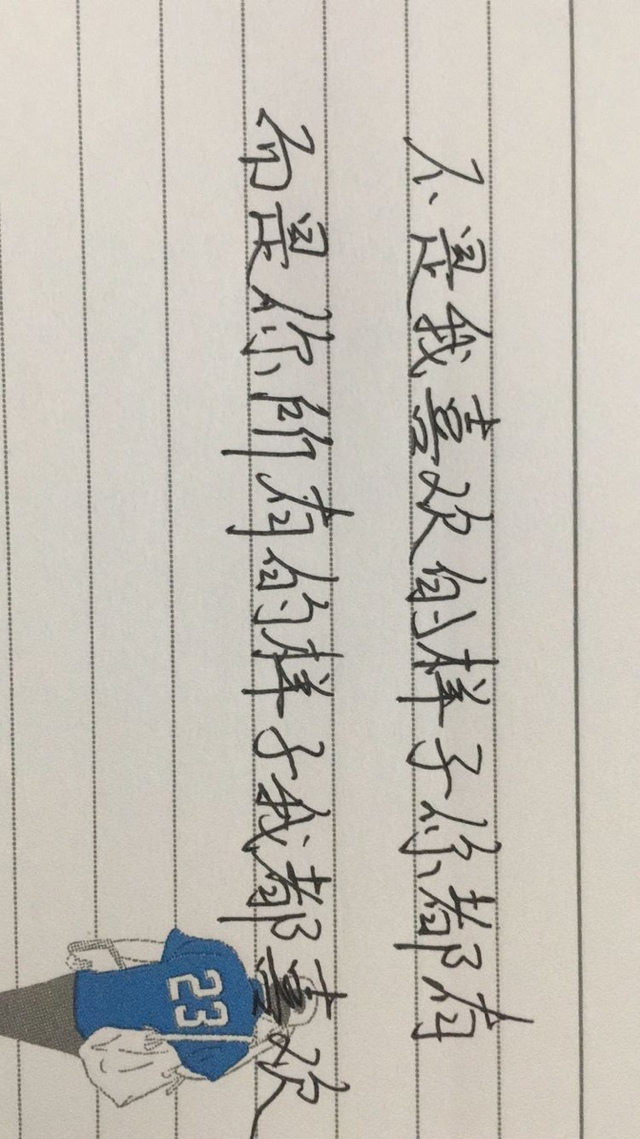 不是我喜欢的样子你都有
而是你所有的样子我都喜欢
23